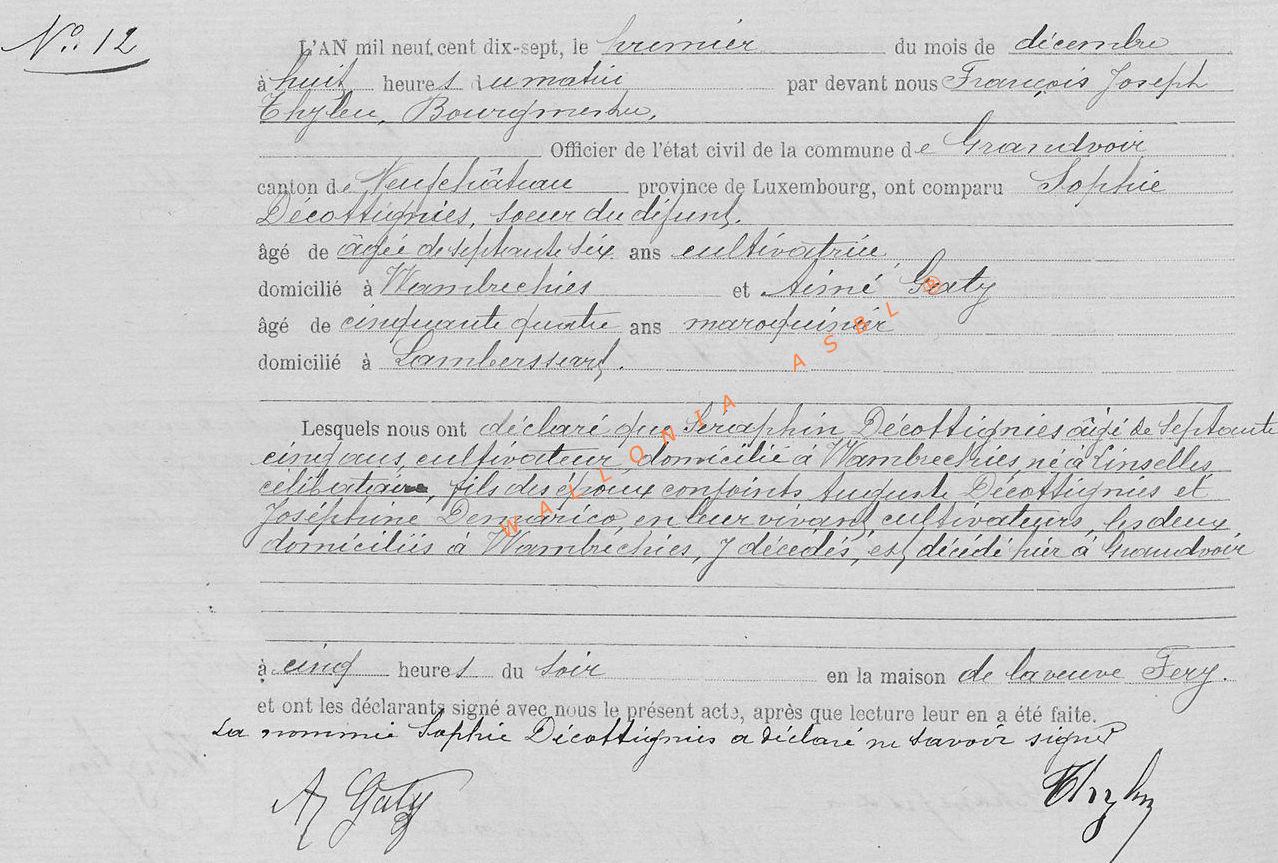 No. 12
L'AN mil neuf cent dix-sept, le premier du mois de décembre
à huit heures du matin par devant nous François Joseph
Thylen, Bourgmestre,
Officier de l'état civil de la commune de Grandvoir
canton de Neufchâteau province de Luxembourg, ont comparu Sophie
Décottignies, soeur du défunt,
âgé de âgée de septante six ans cultivatrice,
domicilié à Wambrechies et Aimé Gaty
âgé de cinquante quatre ans maroquinier
domicilié à Lambersart.
Lesquels nous ont déclaré que Séraphin Décottignies âgé de septante
cinq ans, cultivateur, domicilié à Wambrechies, né à Linselles
célibataire, fils des époux conjoints Auguste Décottignies et
Joséphine en leur vivant cultivateurs, les deux
domiciliés à Wambrechies, y décédés, est décédé hier à Grandvoir
à cinq heures du soir en la maison de la veuve Fery.
et ont les déclarants signé avec nous le présent acte, après que lecture leur en a été faite.
La nommée Sophie Décottignies a déclaré ne savoir signer
A Gaty Thylen
WALLONIA ASBL ®